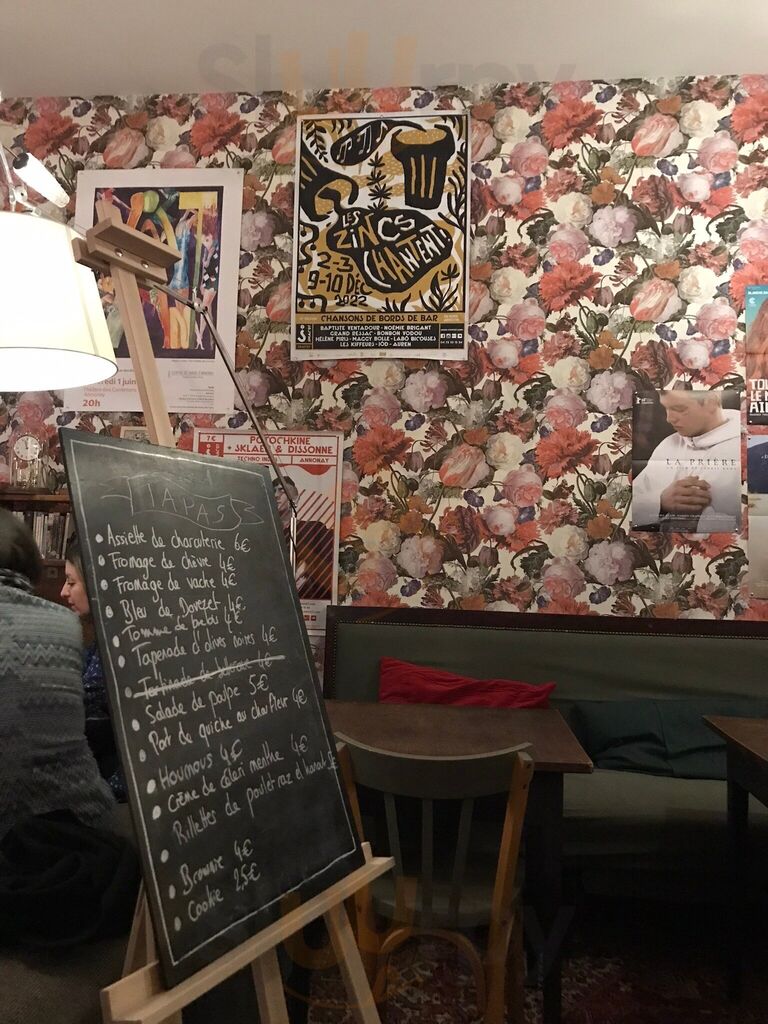 Sluurpy
LES
ZINCS
CHANTENT
2-3
9-10 DÉC
2022
CHANSONS DE BORDS DE BAR
BAPTISTE VENTADOUR - NOÉMIE BRIGANT
GRAND BESSAC - BONBON VODOU
HÉLÈNE PIRIS - MAGGY BOLLE - LABO BICOUSES
LES KIFFEURS - JOD - AUREN
redi 1 juin
20h
7€
POTOCHKINE
+ SKLAER & DISSONNE
TECHNO IND
ANNONAY
LA PRIÈRE
TOU
LE M
AI
TAPASS
Assiette de charcuterie 6€
Fromage de chèvre 4€
Fromage de vache 4€
Bleu de 4€
Tomme de brebis 4€
Tapenade d'olives noires 4€
Tartinade de 4€
Salade de poulpe 5€
Part de quiche au chou fleur 4€
Houmous 4€
Crème de céleri menthe 4€
Rillettes de poulet raz el hanout 5€
Brownie 4€
Cookie 2,5€